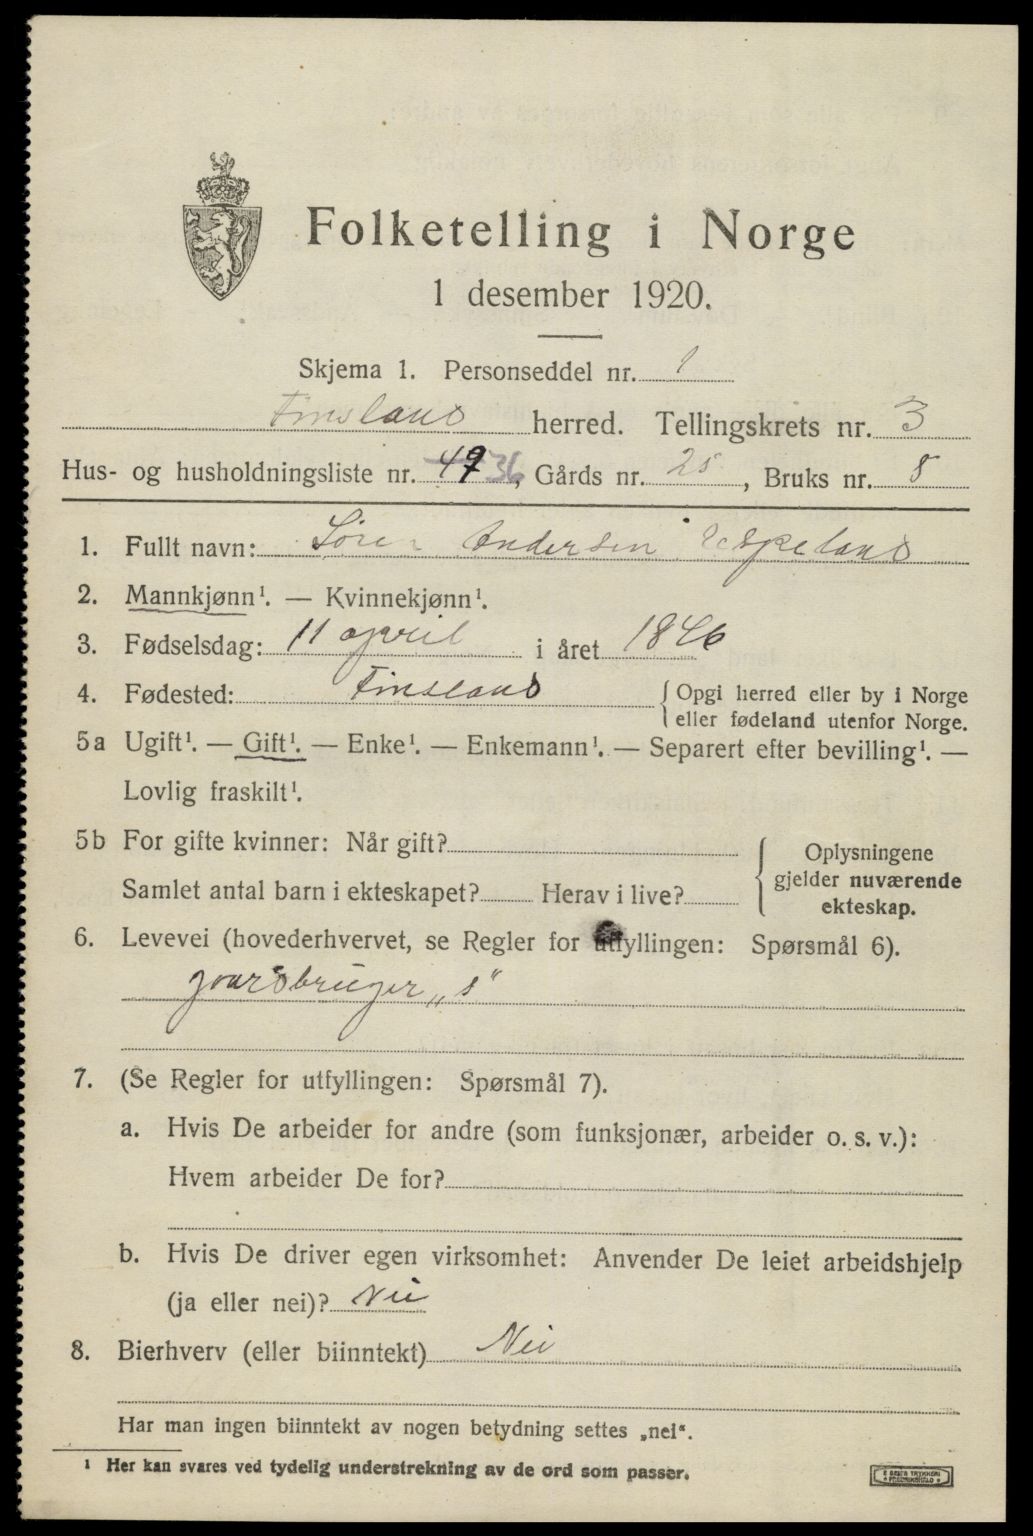 Folketelling i Norge
1 desember 1920.
Skjema 1. Personseddel nr. 1
Finsland herred. Tellingskrets nr. 3
Hus- og husholdningsliste nr. 36, Gårds nr. 25, Bruks nr. 8
1. Fullt navn: Søren Andersen Espeland
2. Mannkjønn¹. — Kvinnekjønn¹.
3. Fødselsdag: 11 april i året 1846
4. Fødested: Finsland { Opgi herred eller by i Norge
eller fødeland utenfor Norge.
5a Ugift¹. — Gift¹. — Enke¹. — Enkemann¹. — Separert efter bevilling¹. —
Lovlig fraskilt¹.
5b For gifte kvinner: Når gift?
Samlet antal barn i ekteskapet? Herav i live?
{ Oplysningene
gjelder nuværende
ekteskap.
6. Levevei (hovederhvervet, se Regler for utfyllingen: Spørsmål 6).
gaardbruger „s“
7. (Se Regler for utfyllingen: Spørsmål 7).
a. Hvis De arbeider for andre (som funksjonær, arbeider o. s. v.):
Hvem arbeider De for?
b. Hvis De driver egen virksomhet: Anvender De leiet arbeidshjelp
(ja eller nei)? Nei
8. Bierhverv (eller biinntekt) Nei
Har man ingen biinntekt av nogen betydning settes „nei“.
¹ Her kan svares ved tydelig understrekning av de ord som passer.